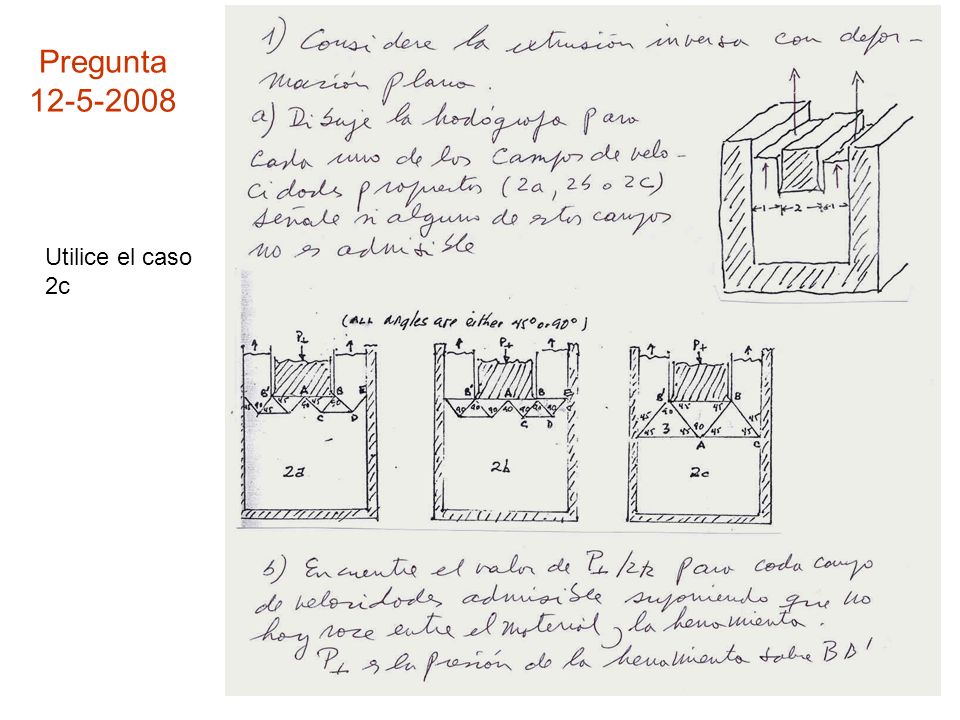 Pregunta
12-5-2008
Utilice el caso
2c
1) Considere la extrusión inversa con defor-
mación plana.
a) Dibuje la hodógrafa para
cada uno de los campos de velo-
cidades propuestos (2a, 2b o 2c)
señale si alguno de estos campos
no es admisible
1 2 1
(ALL angles are either 45° or 90°)
P⊥ P⊥ P⊥
B' A B E
45 90 45 45 90
C D
2a
B' A B E
90 90 90 90
C D
2b
B' B
45 90 45 45 45
3 90
45 45 45 45
A C
2c
b) Encuentre el valor de P⊥/2k para cada campo
de velocidades admisible suponiendo que no
hay roce entre el material y la herramienta.
P⊥ es la presión de la herramienta sobre BB'